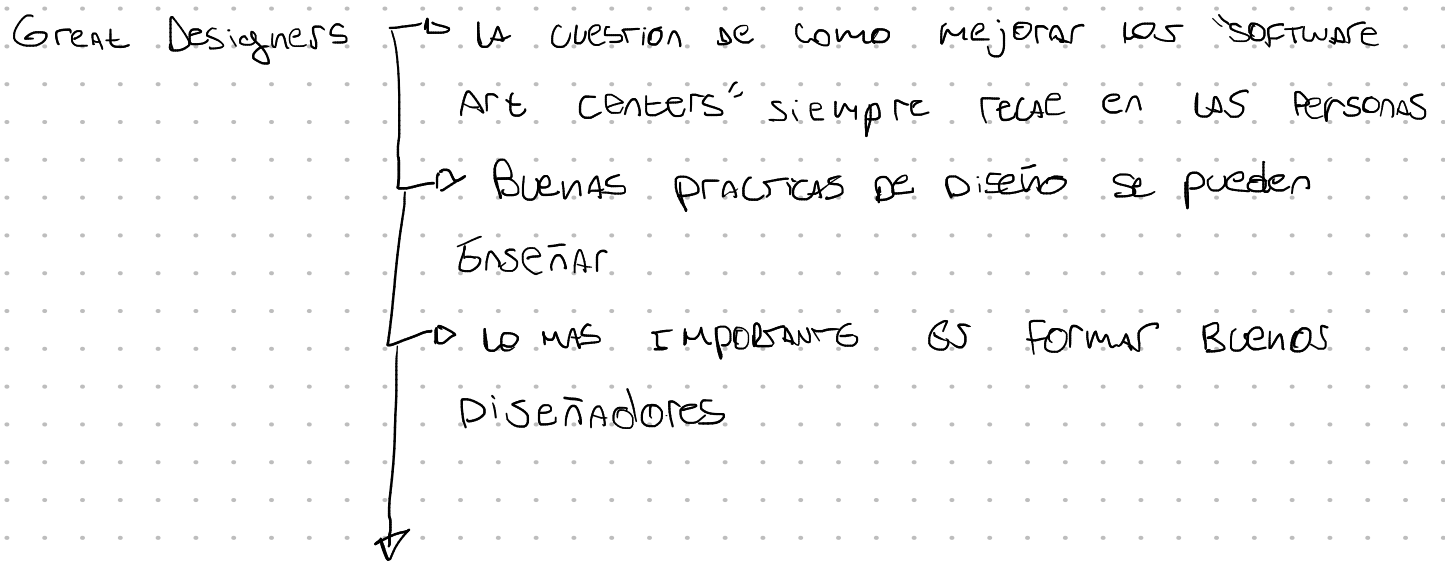 Great Designers
LA CUESTION DE como mejorar LOS "SOFTWARE
Art centers" siempre recae en LAS Personas
BUENAS PRACTICAS DE DISEÑO se pueden
EnseñAr
LO MAS IMPORTANTE ES Formar Buenos
DiseñAdores